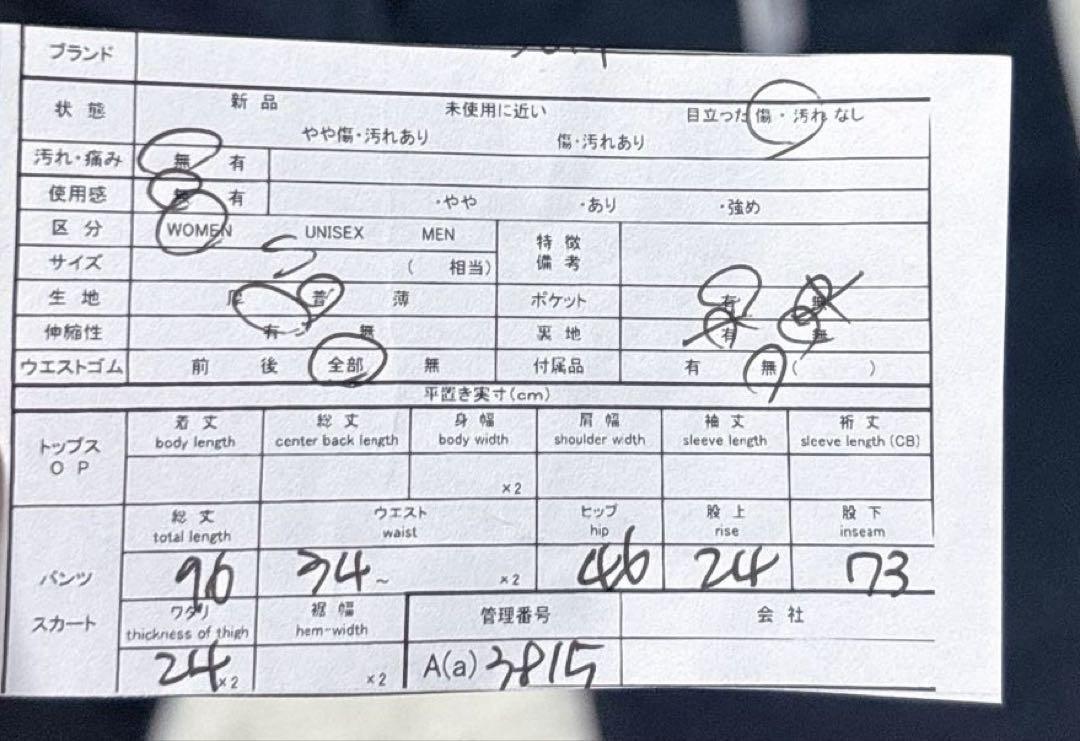 ブランド
状態 新品 未使用に近い 目立った傷・汚れなし
やや傷・汚れあり 傷・汚れあり
汚れ・痛み 無 有
使用感 無 有 ・やや ・あり ・強め
区分 WOMEN UNISEX MEN 特徴
備考
サイズ ( 相当)
生地 厚 普 薄 ポケット 有 無
伸縮性 有 無 裏地 有 無
ウエストゴム 前 後 全部 無 付属品 有 無 ( )
平置き実寸(cm)
トップス
OP
着丈 総丈 身幅 肩幅 袖丈 裄丈
body length center back length body width shoulder wdth sleeve length sleeve length (CB)
×2
パンツ
スカート
総丈 ウエスト ヒップ 股上 股下
total length waist hip rise inseam
96 34~ ×2 46 24 73
ワタリ 裾幅 管理番号 会社
thickness of thigh hem-width
24 ×2 ×2 A(a) 3815